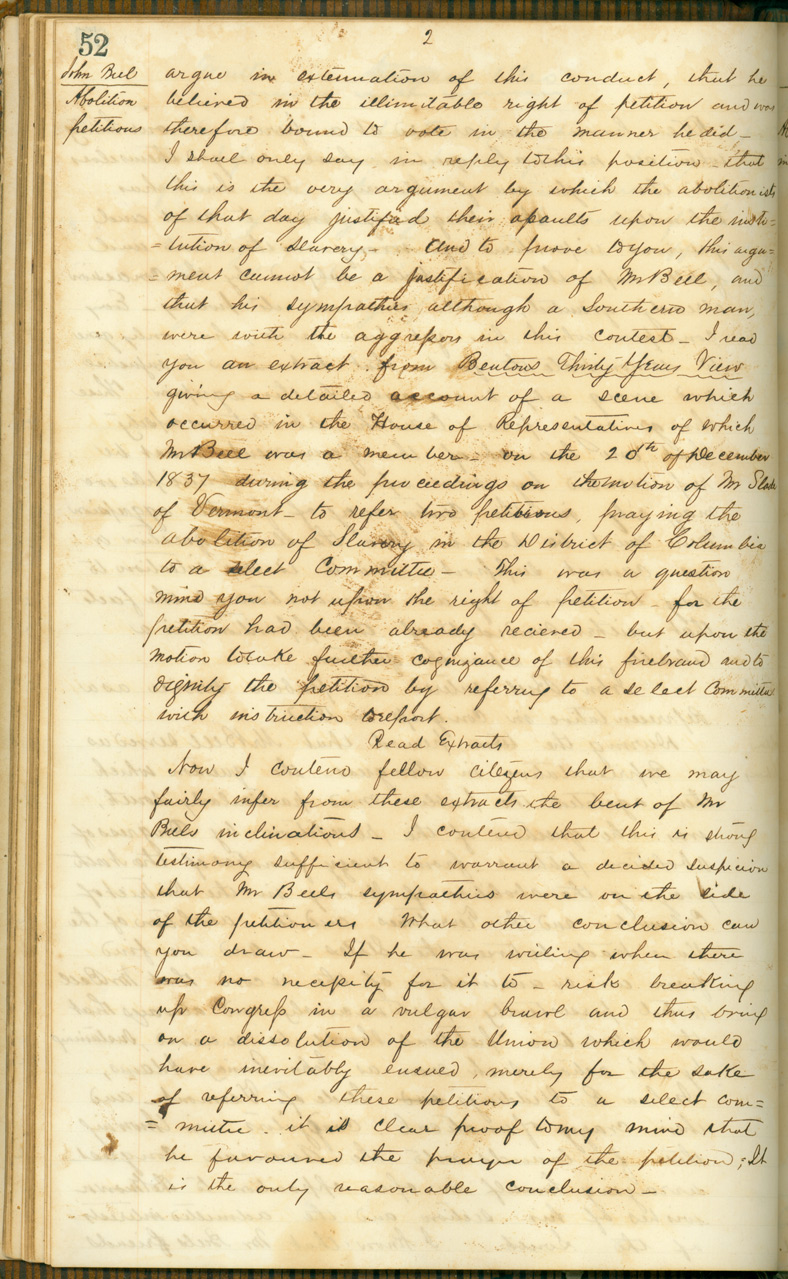 52
2
John Bell
Abolition
petitions
argue in extenuation of this conduct, that he
believed in the illimitable right of petition and was
therefore bound to vote in the manner he did –
I shall only say in reply to this position – that
this is the very argument by which the abolitionists
of that day justified their assaults upon the insti-
=tution of slavery – And to prove to you, this argu=
=ment cannot be a justification of Mr Bell, and
that his sympathies although a Southern man,
were with the aggressors in this contest – I read
you an extract from Bentons Thirty Years View
giving a detailed account of a scene which
occurred in the House of Representatives of which
Mr Bell was a member – on the 20th of December
1837 during the proceedings on the motion of Mr Slade
of Vermont – to refer two petitions, praying the
abolition of Slavery in the District of Columbia
to a select Committee – This was a question
mind you not upon the right of petition – for the
petition had been already recieved – but upon the
motion to take further cognizance of this firebrand and to
dignify the petition by referring to a select Committee
with instruction to report.
Read Extracts
Now I contend fellow citizens that we may
fairly infer from these extracts the bent of Mr
Bells inclinations – I contend that this is strong
testimony sufficient to warrant a decided suspicion
that Mr Bells sympathies were on the side
of the petitioners What other conclusion can
you draw – If he was willing when there
was no necessity for it to – risk breaking
up Congress in a vulgar brawl and thus bring
on a dissolution of the Union which would
have inevitably ensued, merely for the sake
of referring these petitions to a select com=
= mittee. it is clear proof to my mind that
he favoured the prayer of the petition; It
is the only reasonable conclusion –